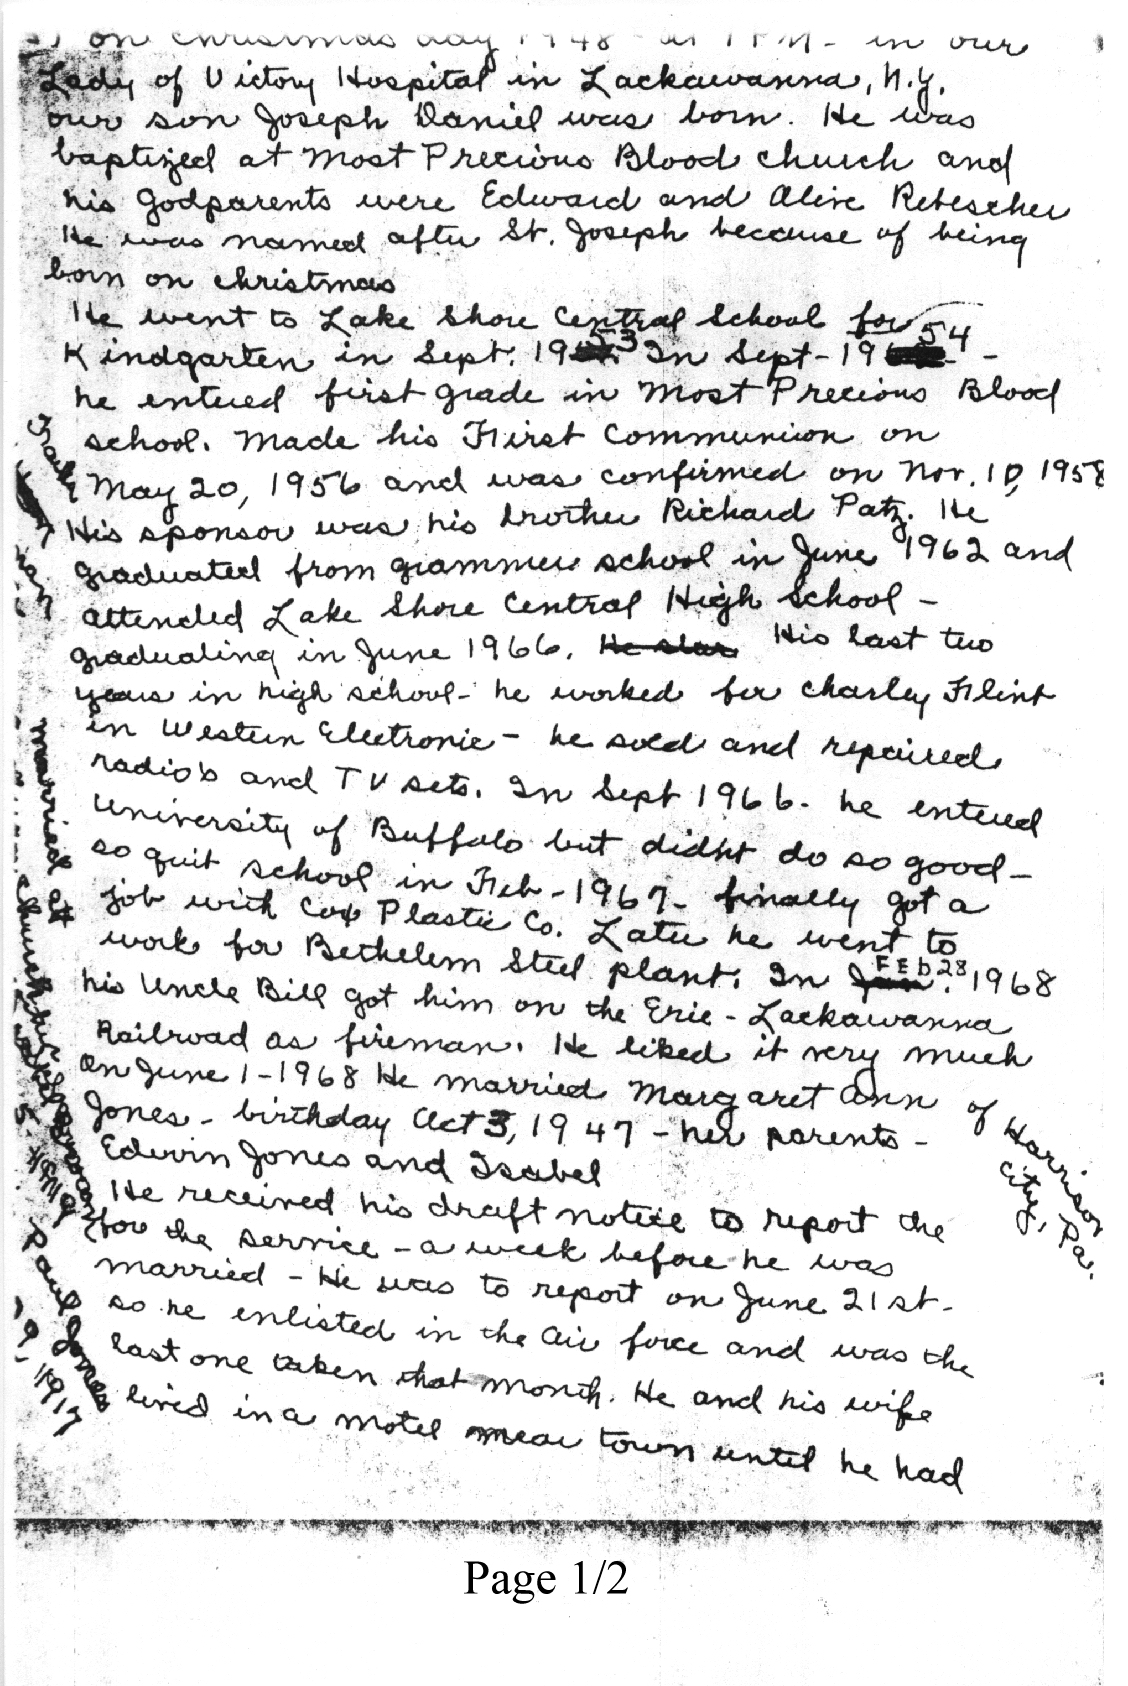 on christmas day 1948 at 1 PM - in our
Lady of Victory Hospital in Lackawanna, N.Y.
our son Joseph Daniel was born. He was
baptized at Most Precious Blood church and
his godparents were Edward and Alice Rebescher
He was named after St. Joseph because of being
born on christmas
He went to Lake Shore Central School for
Kindgarten in Sept. 1953 In Sept - 1954 -
he entered first grade in Most Precious Blood
school. Made his First Communion on
May 20, 1956 and was confirmed on Nov. 10, 1958
His sponsor was his brother Richard Patz. He
graduated from grammer school in June 1962 and
attended Lake Shore Central High School -
graduating in June 1966. His last two
years in high school - he worked for Charley Flint
in Western Electronic - he sold and repaired
radio's and TV sets. In Sept 1966 - he entered
University of Buffalo but didn't do so good -
so quit school in Feb - 1967 - finally got a
job with Cox Plastic Co. Later he went to
work for Bethelem Steel plant. In Feb 28 1968
his Uncle Bill got him on the Erie - Lackawanna
Railroad as fireman. He liked it very much
On June 1 - 1968 He married Margaret Ann
Jones - birthday Oct 3, 1947 - her parents - of Harrison
Edwin Jones and Isabel City, Pa.
He received his draft notice to report the
for the service - a week before he was
married - He was to report on June 21st -
so he enlisted in the Air force and was the
last one taken that month. He and his wife
lived in a motel near town until he had
married at
church
Paul Jones
Page 1/2